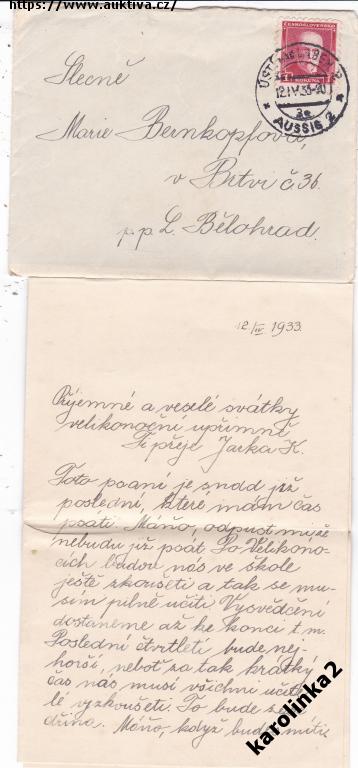 https://www.auktiva.cz/
ČESKOSLOVENSKO
KORUNA
ÚSTÍ NAD LABEM 2
12.IV.33-20
3e
AUSSIG 2
Slečně
Marie Bernkopfova,
v Brtvi č 36.
p.p. L. Bělohrad.
12/IV 1933.
Příjemné a veselé svátky
velikonoční upřímně
Ti přeje Jarka K.
Toto psaní je snad již
poslední, které mám čas
psáti. Máňo, odpust mi že
nebudu již psát. Po Velikono-
cích budou nás ve škole
ještě zkoušeti a tak se mu-
sím pilně učiti. Vysvědčení
dostaneme až ke konci t.m.
Poslední čtvrtletí bude nej-
horší, neboť za tak krátký
čas nás musí všichni učite-
lé vyzkoušeti. To bude
dřina. Máňo, když budeš míti
karolinka2